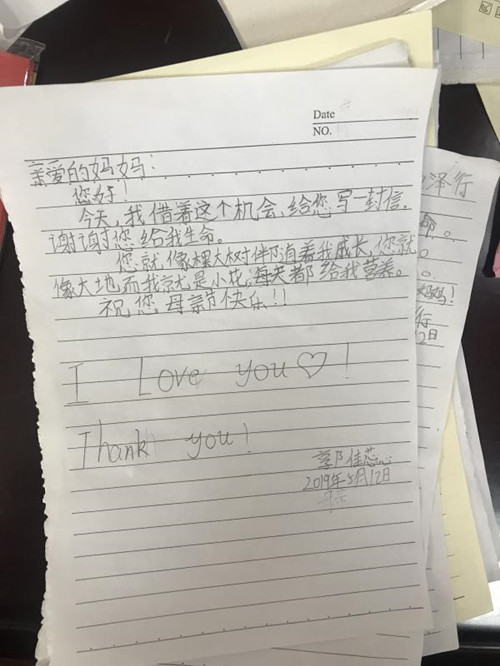 Date
NO.
亲爱的妈妈:
您好!
今天,我借着这个机会,给您写一封信。
谢谢您给我生命。
您就像棵大树伴随着我成长,您就
像大地而我就是小花,每天都给我营养。
祝您母亲节快乐!!
I Love you♡!
Thank you!
郭佳芯
2019年5月12日
泽行
命。
妈!
行
2日